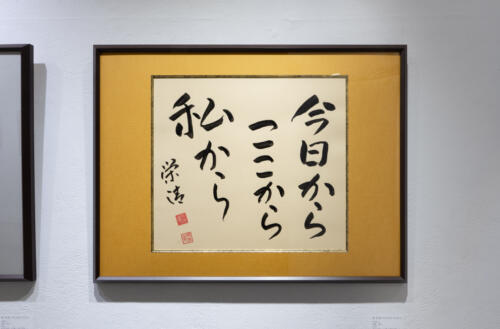 今日から
ここから
私から
栄清